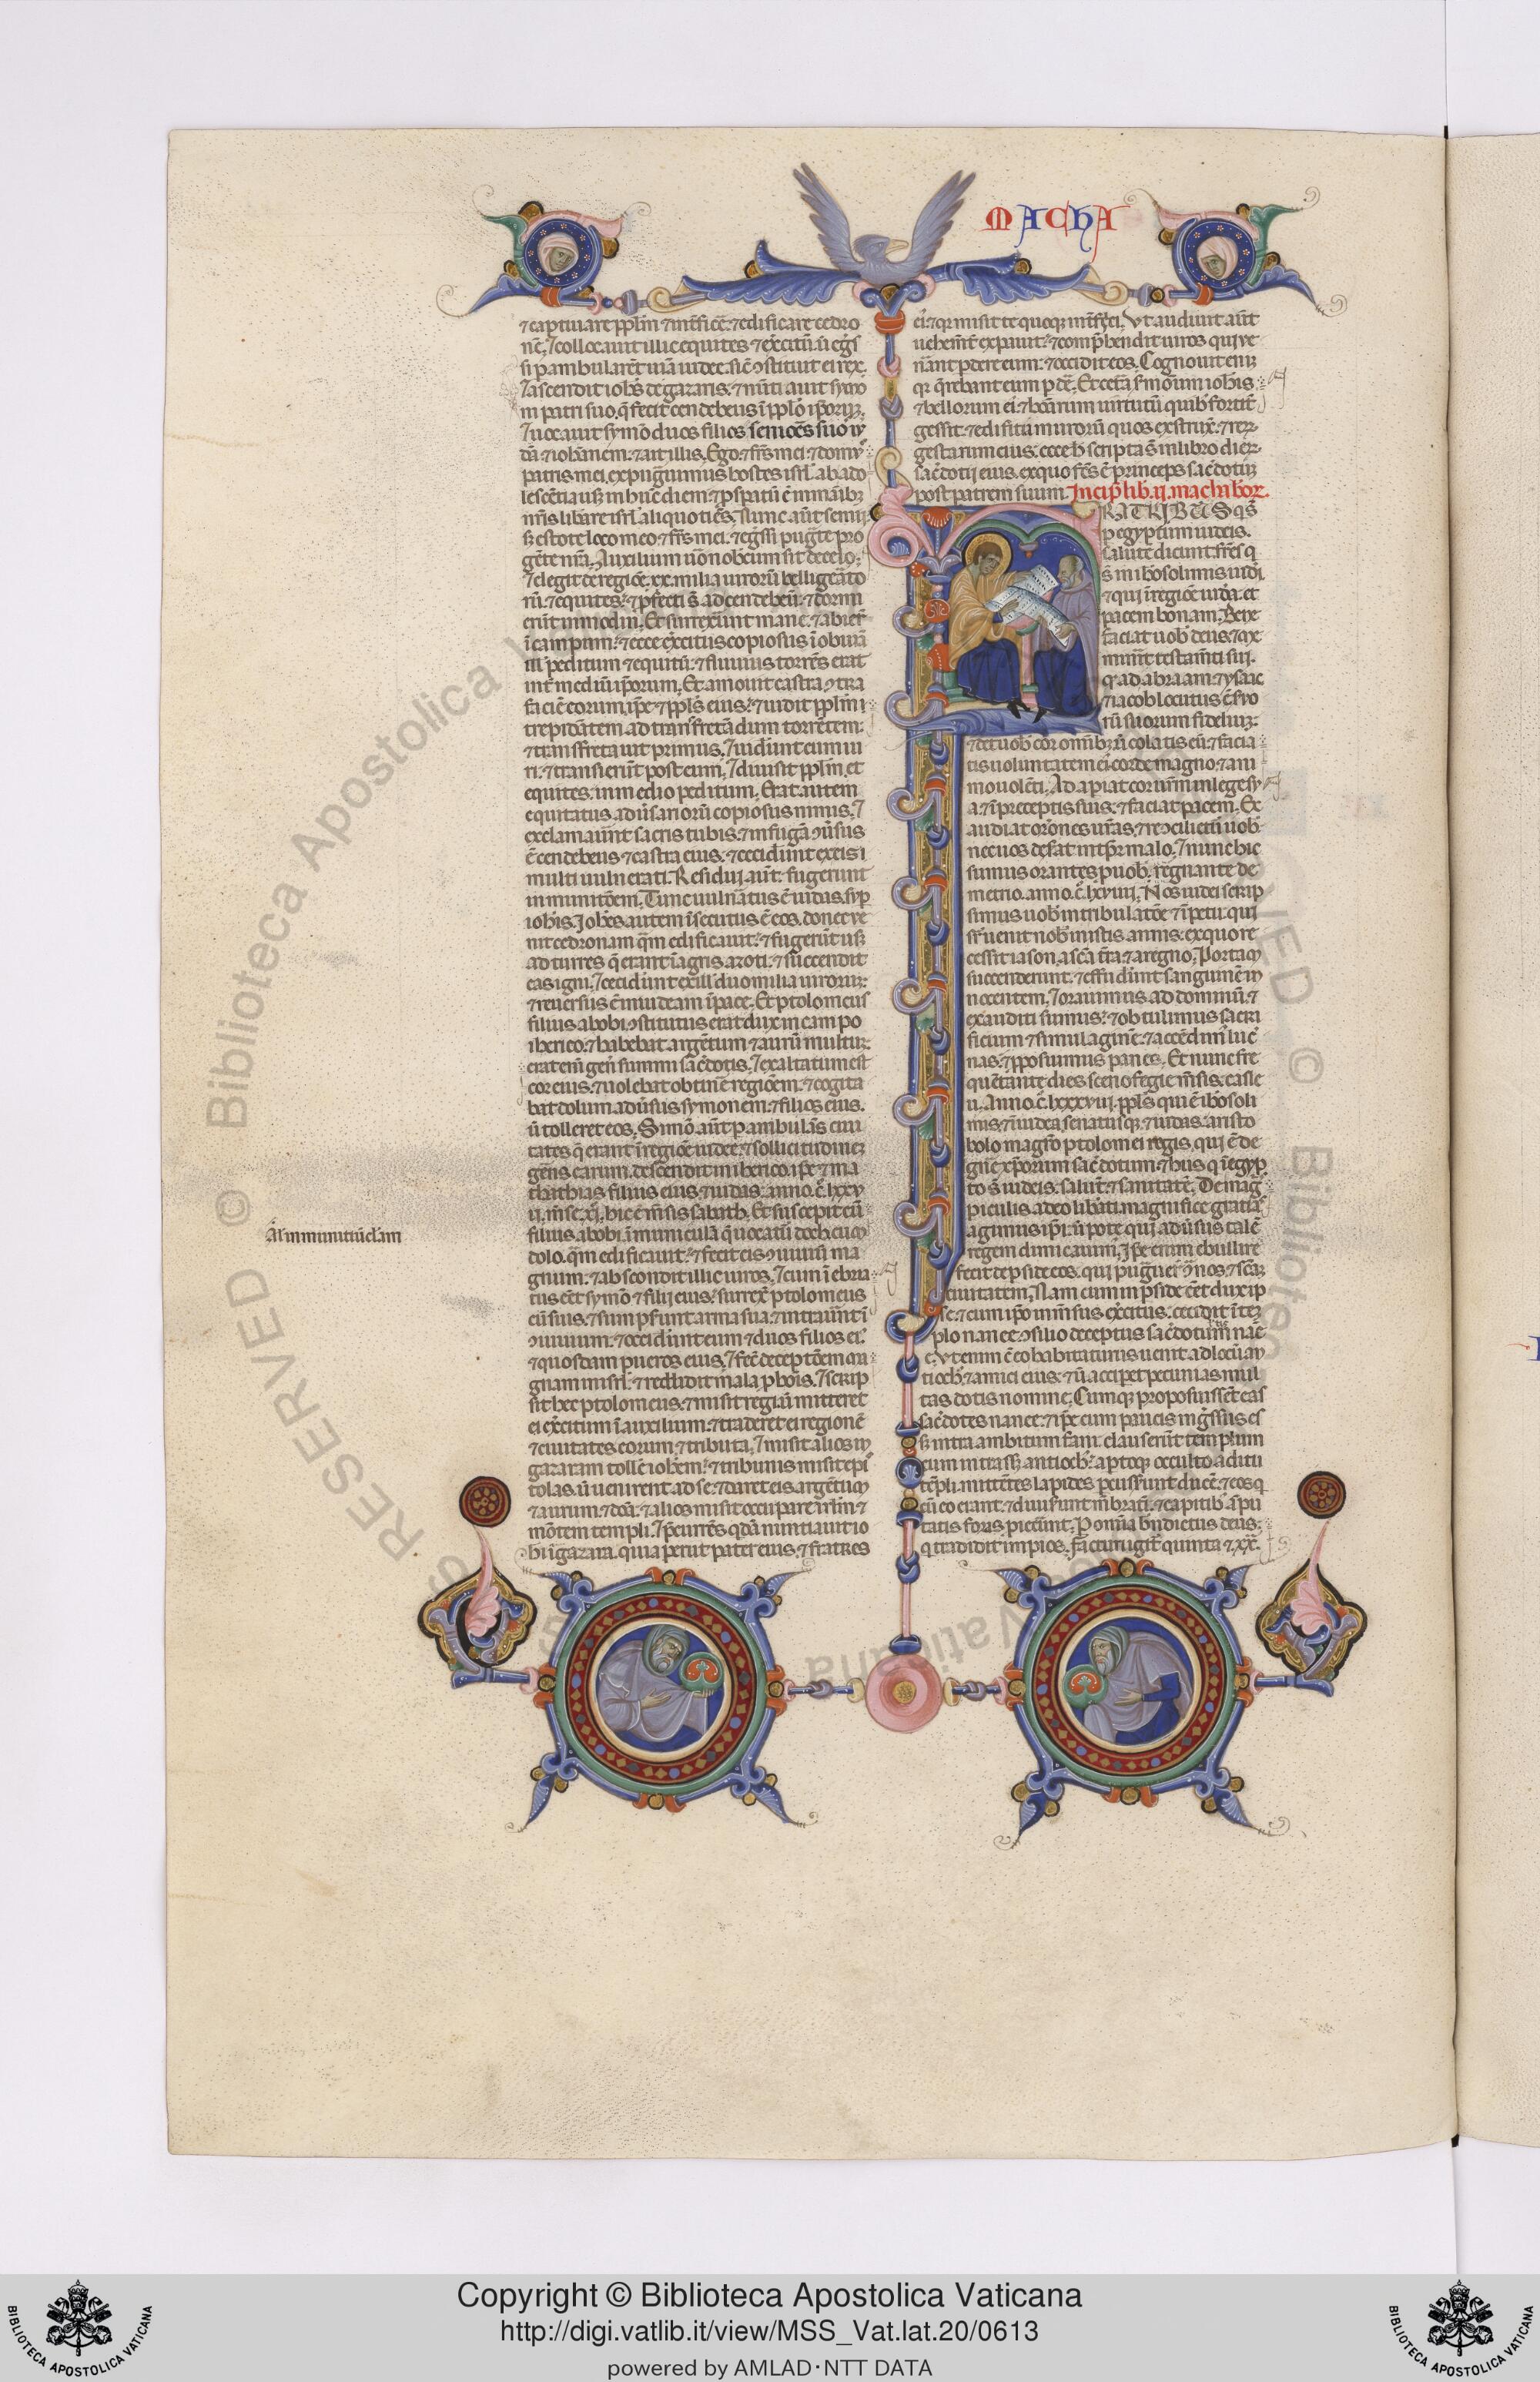 MACHA
⁊captiuare pplm ⁊ int̃ficẽ. ⁊edificare cedro
nẽ. ⁊collocauit illic equites ⁊ exc̃itũ. ũ eg̃s
si pambularẽt uiã iudee. sic̃ ↄstituit ei rex.
⁊ascendit iohs̃ de gazaris. ⁊ nũtiauit symo
ni patri suo. q̃ fecit cendebeus ĩ pplo ip̃orum.
⁊uocauit symõ duos filios seniores suos iu
dã ⁊ iohãnem. ⁊ait illis. Ego. ⁊ frs̃ mei. ⁊ domꝰ
patris mei. expugnauimus hostes isrl̃. ab ado
lescẽtia usꝫ in hunc diem. ⁊ pspatũ ẽ in manibꝫ
nr̃is libare isrl̃ aliquotiẽs. Nunc aũt senui.
sꝫ estote loco meo. ⁊ frs̃ mei. ⁊ eg̃ssi pugnate pro
gẽte nr̃a. Auxilium uõ nobcum sit de celo.
⁊elegit de regiõe. xx. milia uirorũ belligeãto
rũ. ⁊ equites. ⁊ pfecti s̃ ad cendebeũ. ⁊ dormi
erũt in modin. Et surrexẽunt mane. ⁊ abierũt
ĩ campum. ⁊ ecce exc̃itus copiosus ĩ obuiã
ill̃ peditum ⁊ equitũ. ⁊ fluuius torrẽs erat
int̃ mediũ ip̃orum. Et amouit castra ↄtra
faciẽ eorum. ip̃e ⁊ ppls̃ eius. ⁊ uidit pplm̃
trepidãtem ad transfretãdum torrẽtem.
⁊ transfretauit primus. ⁊ uiderunt eum ui
ri. ⁊ transierũt post eum. ⁊ diuisit pplm̃. et
equites. in medio peditum. Erat autem
equitatus adũsariorũ copiosus nimis. ⁊
exclamauẽnt sacris tubis. ⁊ in fugã ↄũsus
ẽ cendebeus ⁊ castra eius. ⁊ ceciderunt ex eis
multi uulnerati. Residui aũt. fugerunt
in munitõem. Tunc uulneratus ẽ iudas. fr̃
iohis. Iohẽs autem ĩsecutus ẽ eos. donec ue
nit cedronam q̃m edificauit. ⁊ fugerũt usꝫ
ad turres q̃ erant ĩ agris azoti. ⁊ succendit
eas igni. ⁊ ceciderunt ex ill̃ duo milia uirorum.
⁊ reuersus ẽ in iudeam ĩ pace. Et ptolomeus
filius abobi ↄstitutus erat dux in campo
iherico. ⁊ habebat argẽtum ⁊ aurũ multum.
erat eñi geñ summi sac̃dotis. ⁊ exaltatum est
cor eius. ⁊ uolebat obtinẽ regiõem. ⁊ cogita
bat dolum adũsus symonem. ⁊ filios eius.
ũ tolleret eos. Simõ aũt pambulãs ciui
tates q̃ erant ĩ regiõe iudee. ⁊ sollicitudinez
gẽns earum. descendit in iherico. ip̃e ⁊ ma
thathias filius eius. ⁊ iudas. anno. c̃. lxxv
ii. m̃se. xi. hic ẽ m̃sis sabath. Et suscepit eũ
filius abobi. ĩ municulã q̃ uocatũ doch cum
dolo. q̃m edificauit. ⁊ fecit eis ↄuiuiũ ma
gnum. ⁊ abscondit illic uiros. ⁊ cum ĩ ebria
tus eẽt symõ ⁊ filii eius. surrex̃ ptolomeus
cũ suis. ⁊ sumpserunt arma sua. ⁊ intrauẽnt ĩ
ↄuiuium. ⁊ occiderunt eum. ⁊ duos filios eiꝰ.
⁊ quosdam pueros eius. ⁊ fec̃ deceptõem ma
gnam in isrl̃. ⁊ reddidit mala p bois. ⁊ scrip
sit hec ptolomeus. ⁊ misit regi. ũ mitteret
ei exc̃itum ĩ auxilium. ⁊ traderet ei regionẽ
⁊ ciuitates eorum. ⁊ tributa. ⁊ misit alios in
gazaram tollẽ iohem̃. ⁊ tribunis misit epi
tolas. ũ uenirent ad se. ⁊ daret eis argẽtum
⁊ aurum. ⁊ dõa. ⁊ alios misit occupare irlm̃ ⁊
mõtem templi. ⁊ pcurrẽs q̃dã nuntiauit io
hi ĩ gazara. quia perit pater eius. ⁊ fratres
al̃ in munitiũclam
eiꝰ. ⁊ qr misit te quoqꝫ int̃fici. Vt audiuit aũt
uehem̃t expauit. ⁊ comp̃hendit uiros qui ue
ñant pdere eum. ⁊ occidit eos. Cognouit enĩ
qr q̃rebant eum pdẽ. Et cet̃a s̃monum iohis.
⁊ bellorum eiꝰ. ⁊ bõarum uirtutũ quibꝰ fortit̃
gessit. ⁊ edificii murorũ quos exstrux̃. ⁊ rerum
gestarum eius. ecce h̃ scripta s̃ in libro dierum
sac̃dotii eius. ex quo fc̃s ẽ princeps sac̃dotum
post patrem suum. Incip̃ lib. ii. machabor.
FRATRIBUS qs̃
p egyptum iudeis.
salutẽ dicunt frẽs q̃
s̃ in ihosolimis iudei
⁊ qui ĩ regiõe iuda. et
pacem bonam. Bene
faciat uob̃ deus. ⁊ qͥ me
minerit testam̃ti sui.
q̃ ad abraam. ⁊ ysaac
⁊ iacob locutus ẽ s̃uo
rũ suorum fidelium.
⁊ det uob̃ cor omnibꝫ ũ colatis eũ. ⁊ facia
tis uoluntatem eiꝰ corde magno. ⁊ ani
mo uolẽti. Adapiat cor ur̃m in lege sy
a. ⁊ ĩ preceptis suis. ⁊ faciat pacem. Ex
audiat orõnes ur̃as. ⁊ recõcilietur uob̃
nec uos desat in tp̃r malo. ⁊ nunc hic
sumus orantes p uob̃. regnante de
metrio. anno. c̃. lxviiii. Nos iudei scrip
simus uob̃ in tribulatõe. ⁊ ĩpetu. qui
suꝑuenit nob̃ in istis annis. ex quo re
cessit iason. a sc̃a t̃ra. ⁊ a regno. Portam
succenderunt. ⁊ effuderunt sanguinẽ in
nocentem. ⁊ orauimus ad dominũ. ⁊
exauditi sumus. ⁊ obtulimus sacri
ficium ⁊ similaginẽ. ⁊ accẽdimꝰ lucẽ
nas. ⁊ pposuimus panes. Et nunc fre
quẽtante dies scenofegie m̃sis. casle
u. Anno. c̃. lxxxviii. ppls̃ qui ẽ ihosoli
mis. ⁊ ĩ iudea. senatusqꝫ. ⁊ iudas. aristo
bolo magr̃o ptolomei regis. qui ẽ de
gñe xp̃orum sac̃dotum. ⁊ hiis q̃ ĩ egyp
to s̃ iudeis. salutẽ. ⁊ sanitatẽ. De mag
piculis. a deo libati. magnifice gratiã
agimus ip̃i. ũ pote qui adũsus talẽ
regem dimicauimꝰ. Ip̃e enim ebullire
fecit de pside eos. qui pugñuerunt ↄ̃ nos. ⁊ sc̃am
ciuitatem. Nam cum in pside eẽt dux ip̃
se. ⁊ cum ip̃o inm̃sus exc̃itus. cecidit ĩ tem
plo nanee. ↄsilio deceptus sac̃dotum nanẽ
e. Vtenim cũ eo habitaturus uenit. ad locũ an
tiochꝰ. ⁊ amici eius. ⁊ ũ acciperet pecunias mul
tas dotis nomine. Cumqꝫ proposuissẽt eas
sac̃dotes nanee. ⁊ ip̃e cum paucis ing̃ssus es
sꝫ intra ambitum fani. clauserũt templum
cum intrassꝫ antiochꝰ. aptoqꝫ occulto aditu
tẽpli. mittẽtes lapides. pcusserunt ducẽ. ⁊ eos q̃
cũ eo erant. ⁊ diuiserunt m̃bratĩ. ⁊ capitibꝰ ãpu
tatis foras piecerunt. P omĩa bñdictus deus.
q̃ tradidit impios. Facturi igit̃ quinta ⁊ xx.
Copyright © Biblioteca Apostolica Vaticana
http://digi.vatlib.it/view/MSS_Vat.lat.20/0613
powered by AMLAD·NTT DATA
BIBLIOTECA APOSTOLICA VATICANA
BIBLIOTECA APOSTOLICA VATICANA